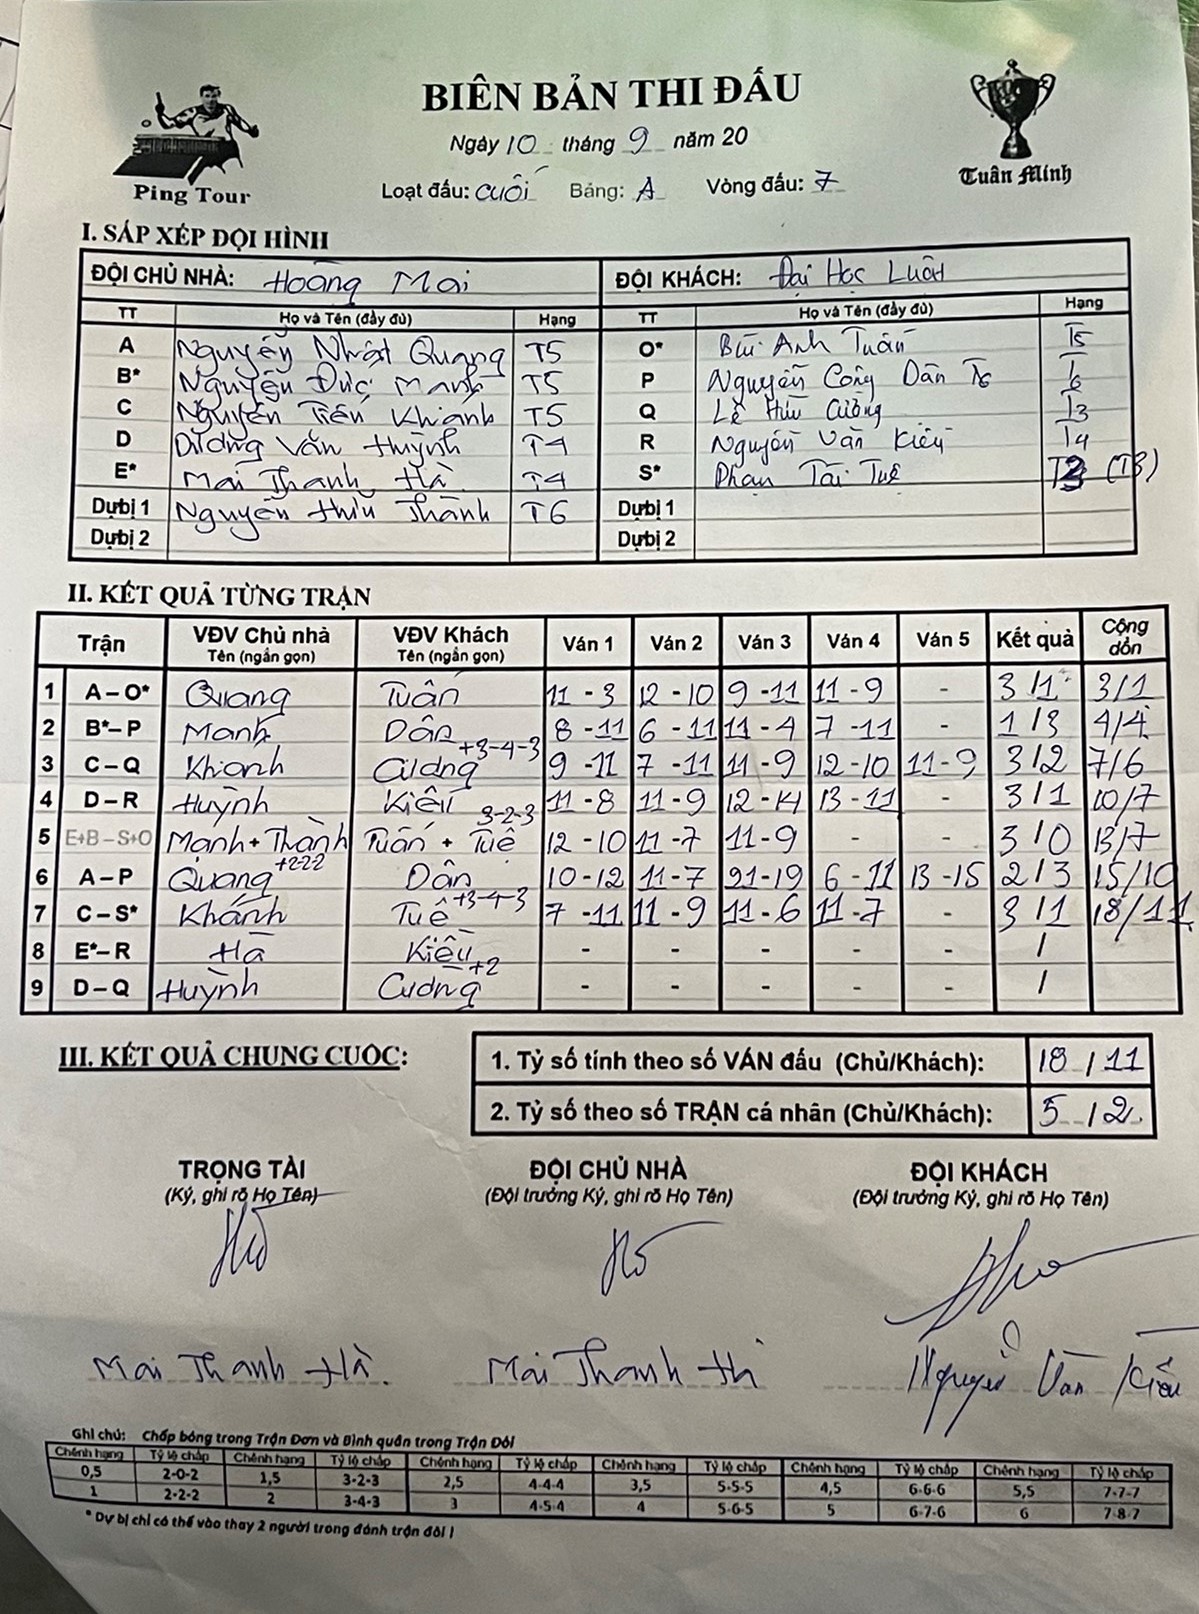 BIÊN BẢN THI ĐẤU
Ngày 10 tháng 9 năm 20
Ping Tour
Tuân Minh
Loạt đấu: cuối Bảng: A Vòng đấu: 7
I. SẮP XẾP ĐỘI HÌNH
ĐỘI CHỦ NHÀ: Hoàng Mai ĐỘI KHÁCH: Đại Học Luật
TT Họ và Tên (đầy đủ) Hạng TT Họ và Tên (đầy đủ) Hạng
A Nguyễn Nhật Quang T5 O* Bùi Anh Tuấn T5
B* Nguyễn Đức Mạnh T5 P Nguyễn Công Dân T6 T6
C Nguyễn Tiến Khánh T5 Q Lê Hữu Cường T3
D Dương Văn Huỳnh T4 R Nguyễn Văn Kiều T4
E* Mai Thanh Hà T4 S* Phan Tài Tuệ (T3)
Dự bị 1 Nguyễn Hữu Thành T6 Dự bị 1
Dự bị 2 Dự bị 2
II. KẾT QUẢ TỪNG TRẬN
Trận VĐV Chủ nhà Tên (ngắn gọn) VĐV Khách Tên (ngắn gọn) Ván 1 Ván 2 Ván 3 Ván 4 Ván 5 Kết quả Cộng dồn
1 A – O* Quang Tuấn 11 - 3 12 - 10 9 - 11 11 - 9 - 3/1 3/1
2 B*– P Mạnh Dân 8 - 11 6 - 11 11 - 4 7 - 11 - 1/3 4/4
3 C – Q Khánh Cường +3-4-3 9 - 11 7 - 11 11 - 9 12 - 10 11 - 9 3/2 7/6
4 D – R Huỳnh Kiều 11 - 8 11 - 9 12 - 14 13 - 11 - 3/1 10/7
5 E+B – S+O Mạnh + Thành Tuấn + Tuệ 3-2-3 12 - 10 11 - 7 11 - 9 - - 3/0 13/7
6 A – P Quang +222 Dân 10 - 12 11 - 7 21 - 19 6 - 11 13 - 15 2/3 15/10
7 C – S* Khánh Tuệ +3-4-3 7 - 11 11 - 9 11 - 6 11 - 7 - 3/1 18/11
8 E*– R Hà Kiều - - - - - /
9 D – Q Huỳnh Cường +2 - - - - - /
III. KẾT QUẢ CHUNG CUỘC:
1. Tỷ số tính theo số VÁN đấu (Chủ/Khách): 18 / 11
2. Tỷ số theo số TRẬN cá nhân (Chủ/Khách): 5 / 2
TRỌNG TÀI ĐỘI CHỦ NHÀ ĐỘI KHÁCH
(Ký, ghi rõ Họ Tên) (Đội trưởng Ký, ghi rõ Họ Tên) (Đội trưởng Ký, ghi rõ Họ Tên)
Mai Thanh Hà. Mai Thanh Hà Nguyễn Văn Kiều
Ghi chú: Chấp bóng trong Trận Đơn và Bình quân trong Trận Đôi
Chênh hạng Tỷ lệ chấp Chênh hạng Tỷ lệ chấp Chênh hạng Tỷ lệ chấp Chênh hạng Tỷ lệ chấp Chênh hạng Tỷ lệ chấp Chênh hạng Tỷ lệ chấp
0,5 2-0-2 1,5 3-2-3 2,5 4-4-4 3,5 5-5-5 4,5 6-6-6 5,5 7-7-7
1 2-2-2 2 3-4-3 3 4-5-4 4 5-6-5 5 6-7-6 6 7-8-7
* Dự bị chỉ có thể vào thay 2 người trong đánh trận đôi !